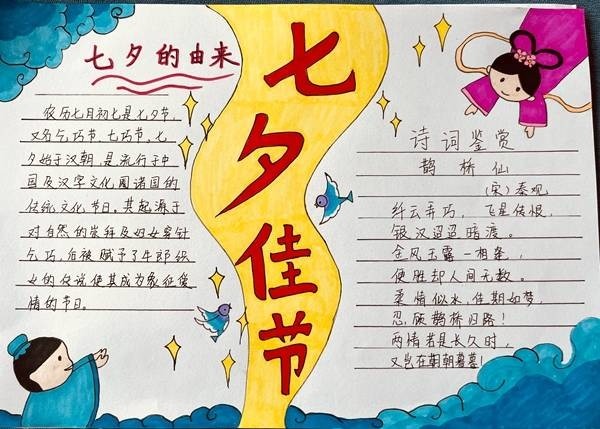 七夕的由来
农历七月初七是七夕节,
又名乞巧节、七巧节, 七
夕始于汉朝,是流行于中
国及汉字文化圈诸国的
传统文化节日。其起源于
对自然的崇拜及妇女穿针
乞巧,后被赋予了牛郎织
女的传说使其成为象征爱
情的节日。
七夕佳节
诗词鉴赏
鹊桥仙
(宋)秦观
纤云弄巧, 飞星传恨,
银汉迢迢暗渡。
金风玉露一相逢,
便胜却人间无数。
柔情似水,佳期如梦,
忍顾鹊桥归路!
两情若是长久时,
又岂在朝朝暮暮!